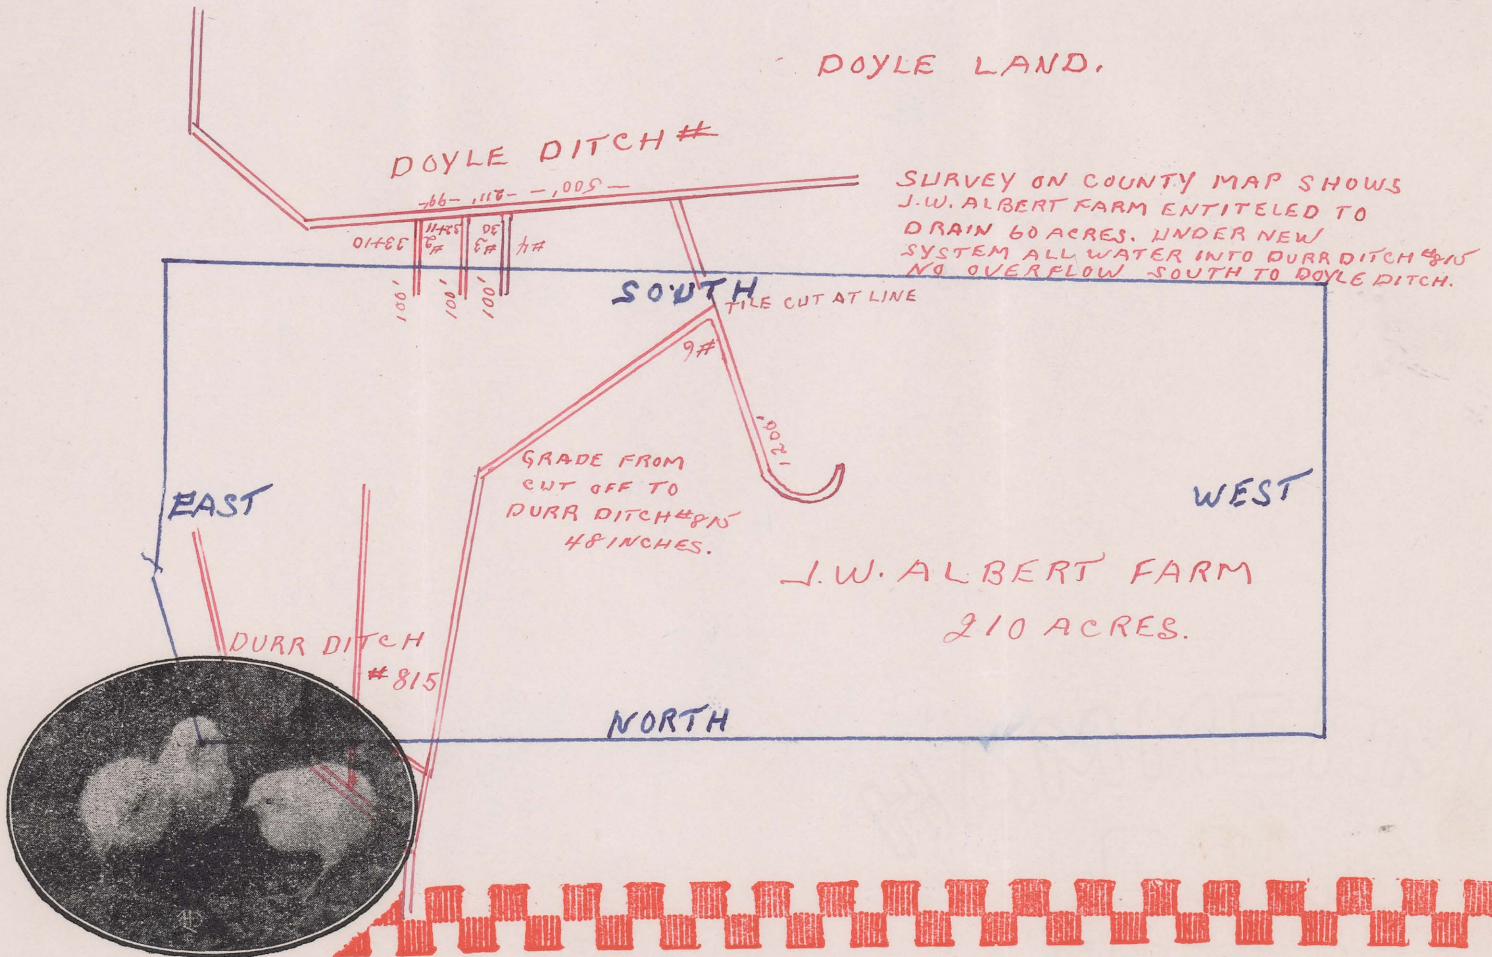 DOYLE LAND.
DOYLE DITCH #
99' - 211' - 500' -
SURVEY ON COUNTY MAP SHOWS
J.W. ALBERT FARM ENTITELED TO
DRAIN 60 ACRES. UNDER NEW
SYSTEM ALL WATER INTO DURR DITCH #815
NO OVERFLOW SOUTH TO DOYLE DITCH.
33+10
#2
32+11
#3
30
#4
100'
100'
100'
SOUTH
TILE CUT AT LINE
#6
1200'
GRADE FROM
CUT OFF TO
DURR DITCH #815
48 INCHES.
EAST
WEST
J.W. ALBERT FARM
210 ACRES.
DURR DITCH
#815
NORTH